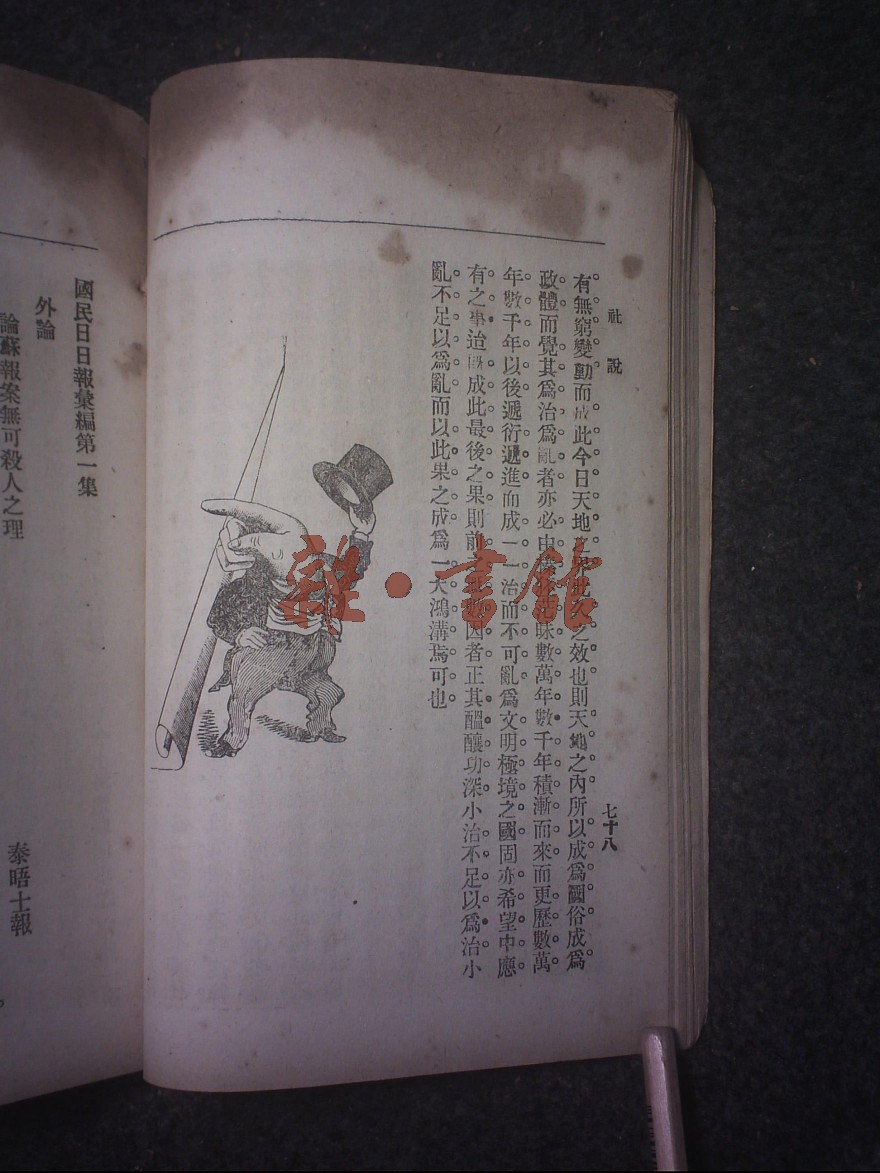 社說 七十八
有無窮變動而成此今日天地之效也則天地之內所以成爲國俗成爲
政體而覺其爲治爲亂者亦必由昧數萬年數千年積漸而來而更歷數萬
年數千年以後遞衍遞進而成一一治而不可亂爲文明極境之國固亦希望中應
有之事迨旣成此最後之果則前因者正其醞釀功深小治不足以爲治小
亂不足以爲亂而以此果之成爲一大鴻溝焉可也
國民日日報彙編第一集
外論
論蘇報案無可殺人之理 泰晤士報
雜·書館